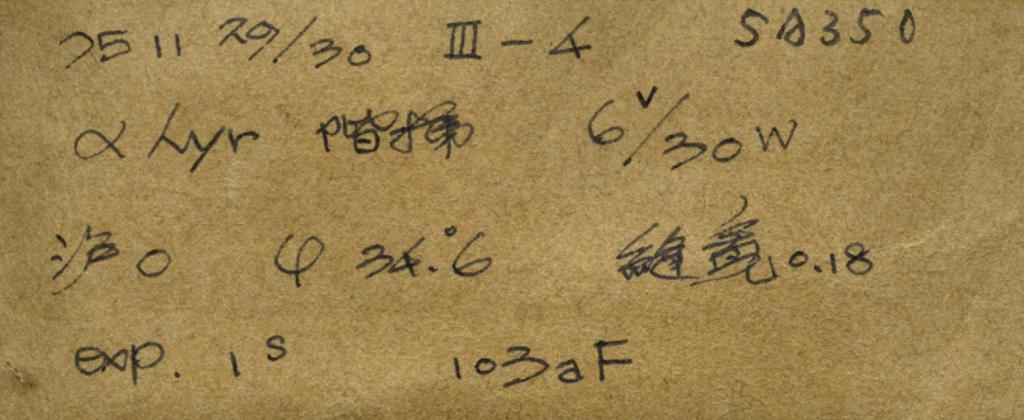 7511 29/30 III-4 SA350
α Lyr 階梯 6V/30W
沪0 φ 34.°6 縫寬0.18
exp. 1s 103aF